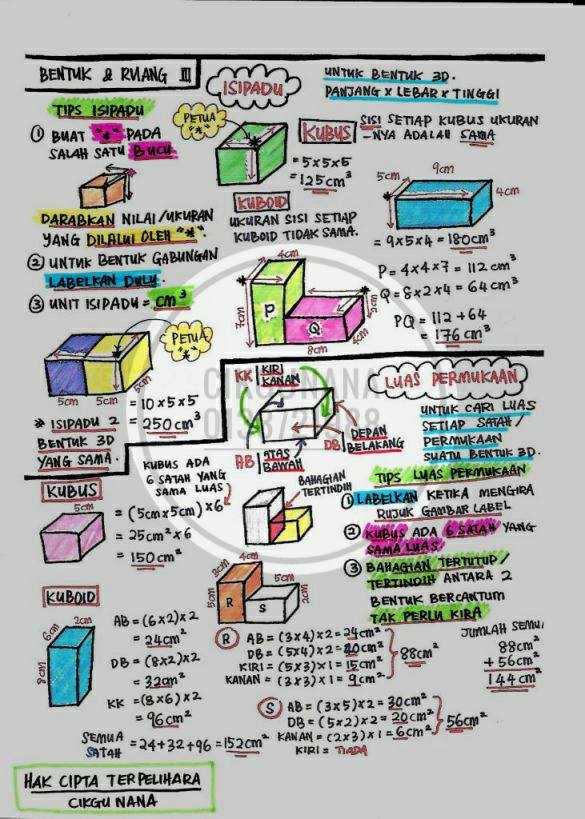 BENTUK & RUANG III
ISIPADU
UNTUK BENTUK 3D.
PANJANG x LEBAR x TINGGI
TIPS ISIPADU
① BUAT "*" PADA
SALAH SATU BUCU.
DARABKAN NILAI/UKURAN
YANG DILALUI OLEH "*".
② UNTUK BENTUK GABUNGAN
LABELKAN DULU.
③ UNIT ISIPADU = cm³
PETUA
KUBUS
SISI SETIAP KUBUS UKURAN
-NYA ADALAH SAMA
= 5x5x5
= 125cm³
KUBOID
UKURAN SISI SETIAP
KUBOID TIDAK SAMA.
9cm
5cm
4cm
= 9x5x4 = 180cm³
4cm
7cm
P
Q
8cm
4cm
2cm
P = 4x4x7 = 112cm³
Q = 8x2x4 = 64cm³
PQ = 112 + 64
= 176cm³
PETUA
5cm
5cm 5cm
= 10x5x5
= 250cm³
* ISIPADU 2
BENTUK 3D
YANG SAMA.
CIKGUNANA
LUAS PERMUKAAN
UNTUK CARI LUAS
SETIAP SATAH/
PERMUKAAN
SUATU BENTUK 3D.
KK KIRI KANAN
AB ATAS BAWAH
DB DEPAN BELAKANG
TIPS LUAS PERMUKAAN
① LABELKAN KETIKA MENGIRA
RUJUK GAMBAR LABEL
② KUBUS ADA 6 SATAH YANG
SAMA LUAS
③ BAHAGIAN TERTUTUP/
TERTINDIH ANTARA 2
BENTUK BERCANTUM
TAK PERLU KIRA
KUBUS
KUBUS ADA
6 SATAH YANG
SAMA LUAS
5cm
= (5cmx5cm)x6
= 25cm² x 6
= 150cm²
BAHAGIAN
TERTINDIH
KUBOID
6cm
2cm
8cm
AB = (6x2)x2
= 24cm²
DB = (8x2)x2
= 32cm²
KK = (8x6)x2
= 96cm²
SEMUA
SATAH = 24+32+96 = 152cm²
3cm
4cm
5cm
R
S
5cm
2cm
Ⓡ AB = (3x4)x2 = 24cm²
DB = (5x4)x2 = 40cm²
KIRI = (5x3)x1 = 15cm²
KANAN = (3x3)x1 = 9cm²
88cm²
Ⓢ AB = (3x5)x2 = 30cm²
DB = (5x2)x2 = 20cm²
KANAN = (2x3)x1 = 6cm²
KIRI = TIADA
56cm²
JUMLAH SEMU
88cm²
+ 56cm²
144cm²
HAK CIPTA TERPELIHARA
CIKGU NANA